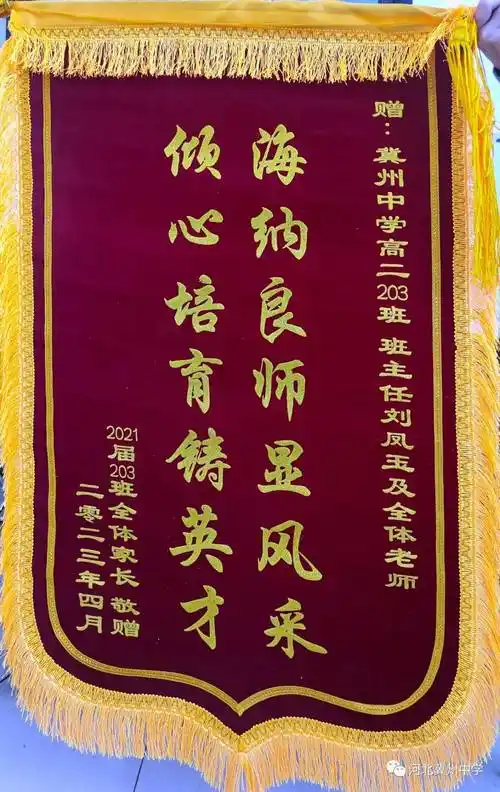 赠：冀州中学高二203班 班主任刘凤玉及全体老师
海纳良师显风采
倾心培育铸英才
2021届203班全体家长 敬赠
二零二三年四月
河北冀州中学